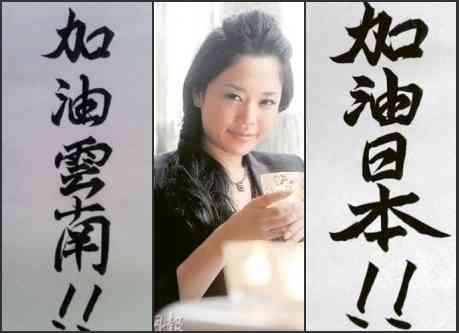 加油雲南!!
報
加油日本!!